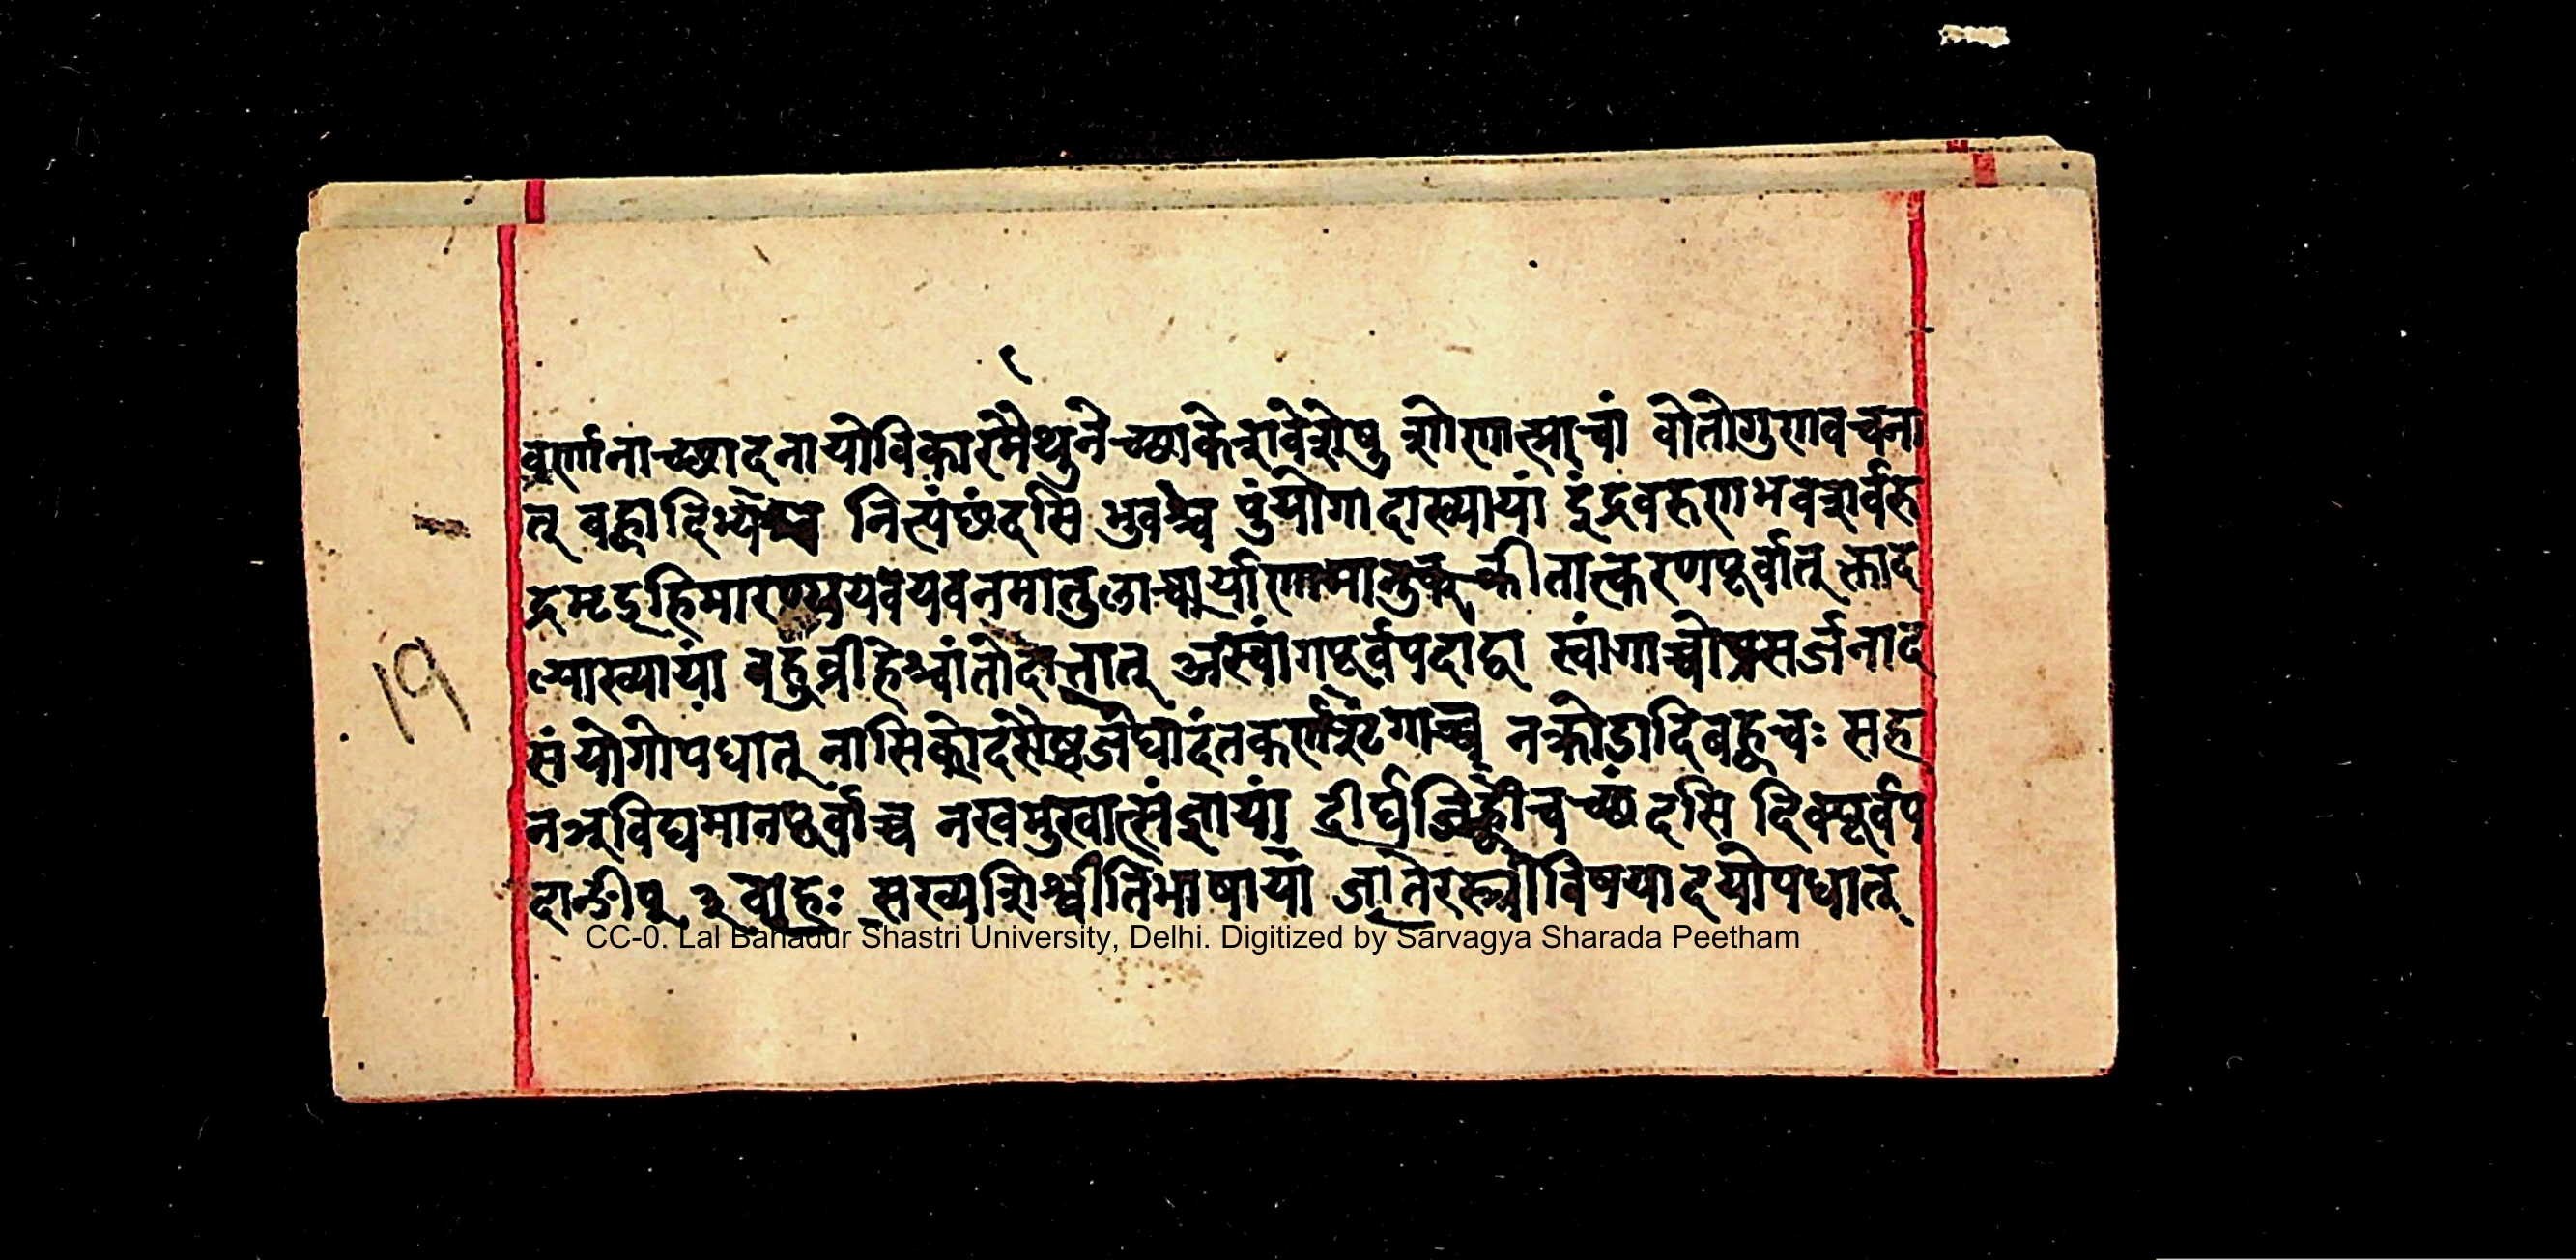 वर्णानाच्छादनायोविकारमैथुनेच्छाकेशवेशेषु शोणात्प्राचां वोतोगुणवचना
त् बह्वादिभ्यश्च नित्यंछंदसि भुवश्च पुंयोगादाख्यायां इंद्रवरुणभवशर्वरु
द्रमृडहिमारण्ययवयवनमातुलाचार्याणामानुक् क्रीतात्करणपूर्वात् क्ताद
ल्पाख्यायां बहुव्रीहेश्चांतोदात्तात् अस्वांगपूर्वपदाद्वा स्वांगाच्चोपसर्जनाद
19
संयोगोपधात् नासिकोदरौष्ठजंघादंतकर्णशृंगाच्च नक्रोडादिबह्वचः सह
नञ्विद्यमानपूर्वाच्च नखमुखात्संज्ञायां दीर्घजिह्वीचच्छंदसि दिक्पूर्वप
दान्ङीप् वाहः सख्यशिश्वीतिभाषायां जातेरस्त्रीविषयादयोपधात्
CC-0. Lal Bahadur Shastri University, Delhi. Digitized by Sarvagya Sharada Peetham